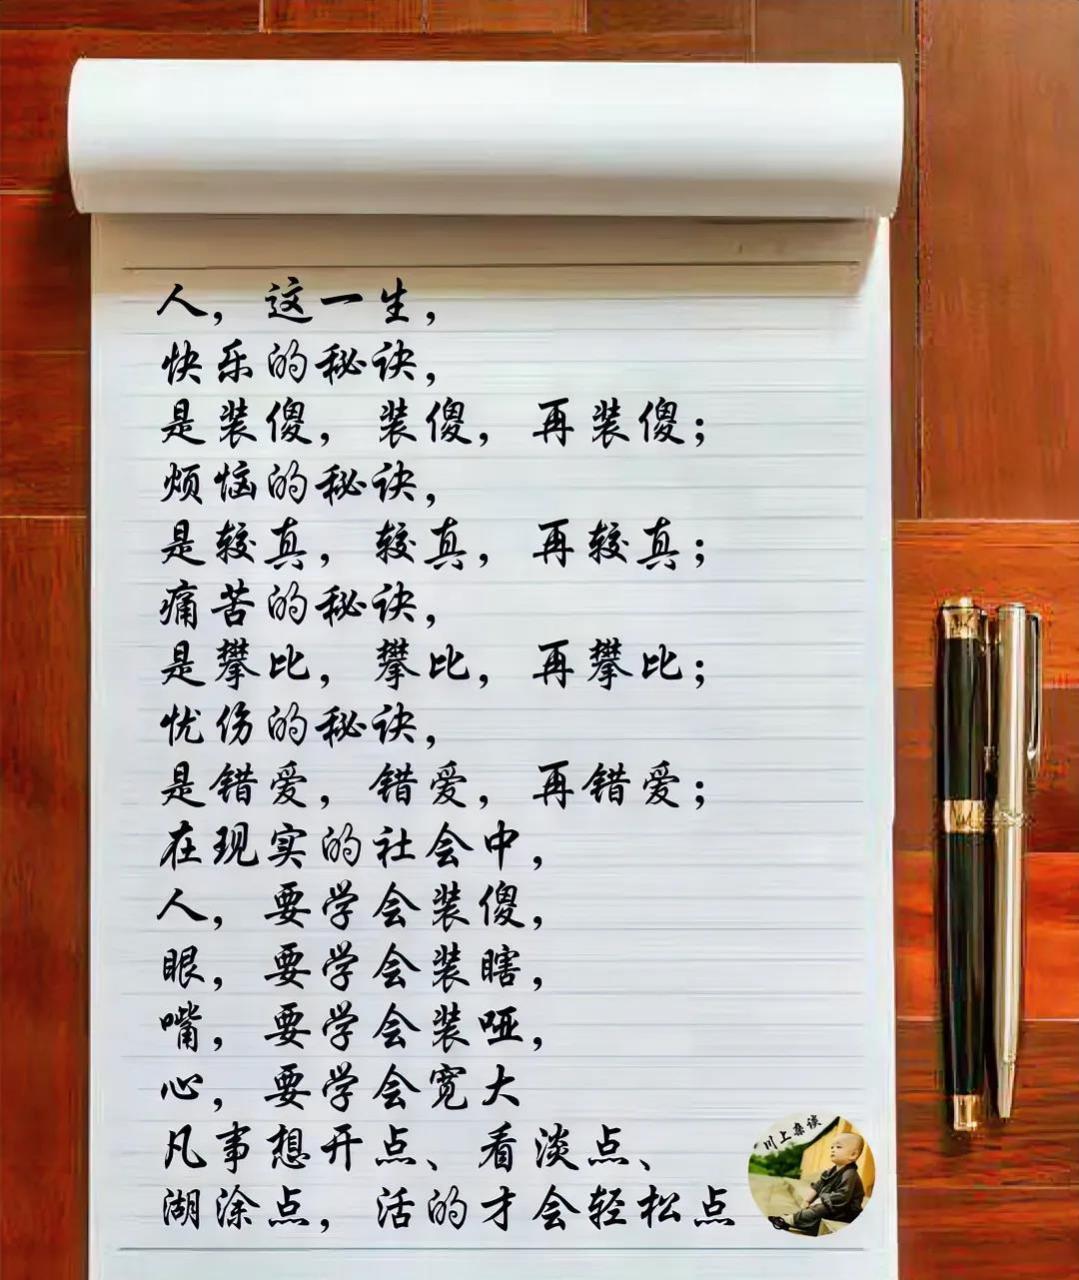 人，这一生，
快乐的秘诀，
是装傻，装傻，再装傻；
烦恼的秘诀，
是较真，较真，再较真；
痛苦的秘诀，
是攀比，攀比，再攀比；
忧伤的秘诀，
是错爱，错爱，再错爱；
在现实的社会中，
人，要学会装傻，
眼，要学会装瞎，
嘴，要学会装哑，
心，要学会宽大
凡事想开点、看淡点、
湖涂点，活的才会轻松点
川上杂谈